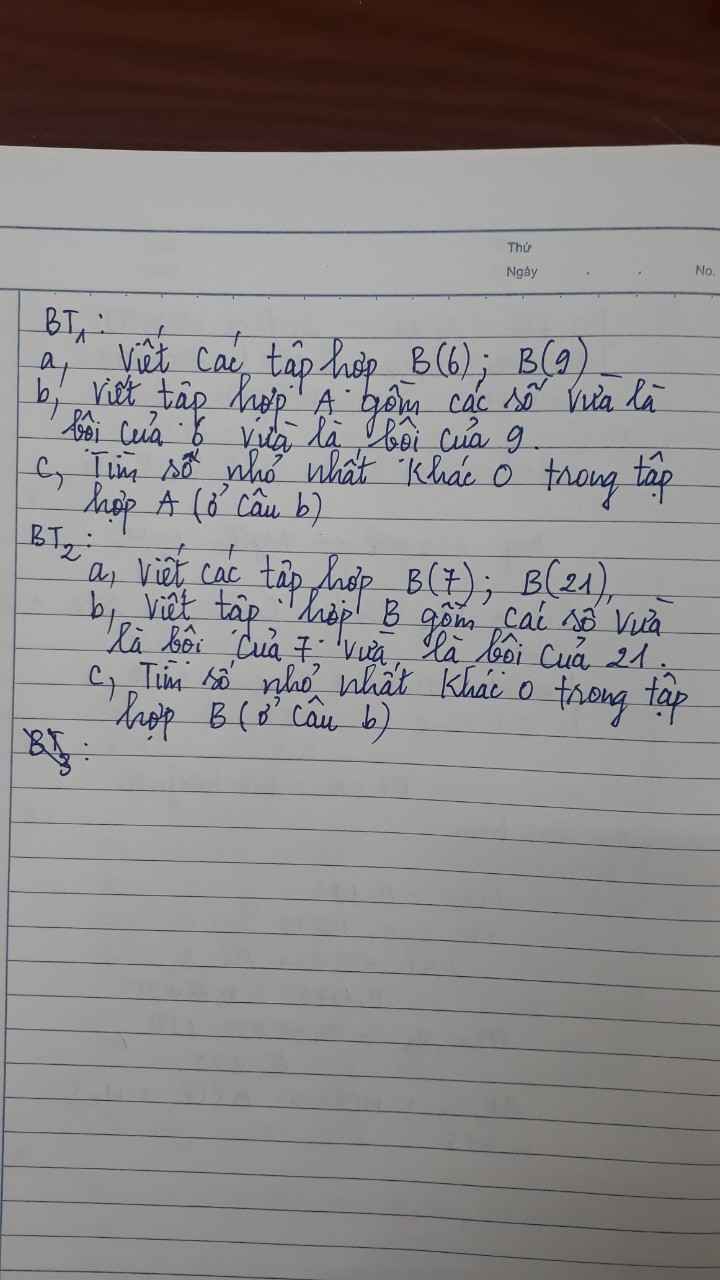 Thứ
Ngày . . No.
BT1:
a, Viết các tập hợp B(6); B(9)
b, Viết tập hợp A gồm các số vừa là
bội của 6 vừa là bội của 9.
c, Tìm số nhỏ nhất khác 0 trong tập
hợp A (ở câu b)
BT2:
a, Viết các tập hợp B(7); B(21),
b, Viết tập hợp B gồm các số vừa
là bội của 7 vừa là bội của 21.
c, Tìm số nhỏ nhất khác 0 trong tập
hợp B (ở câu b)
BT3: